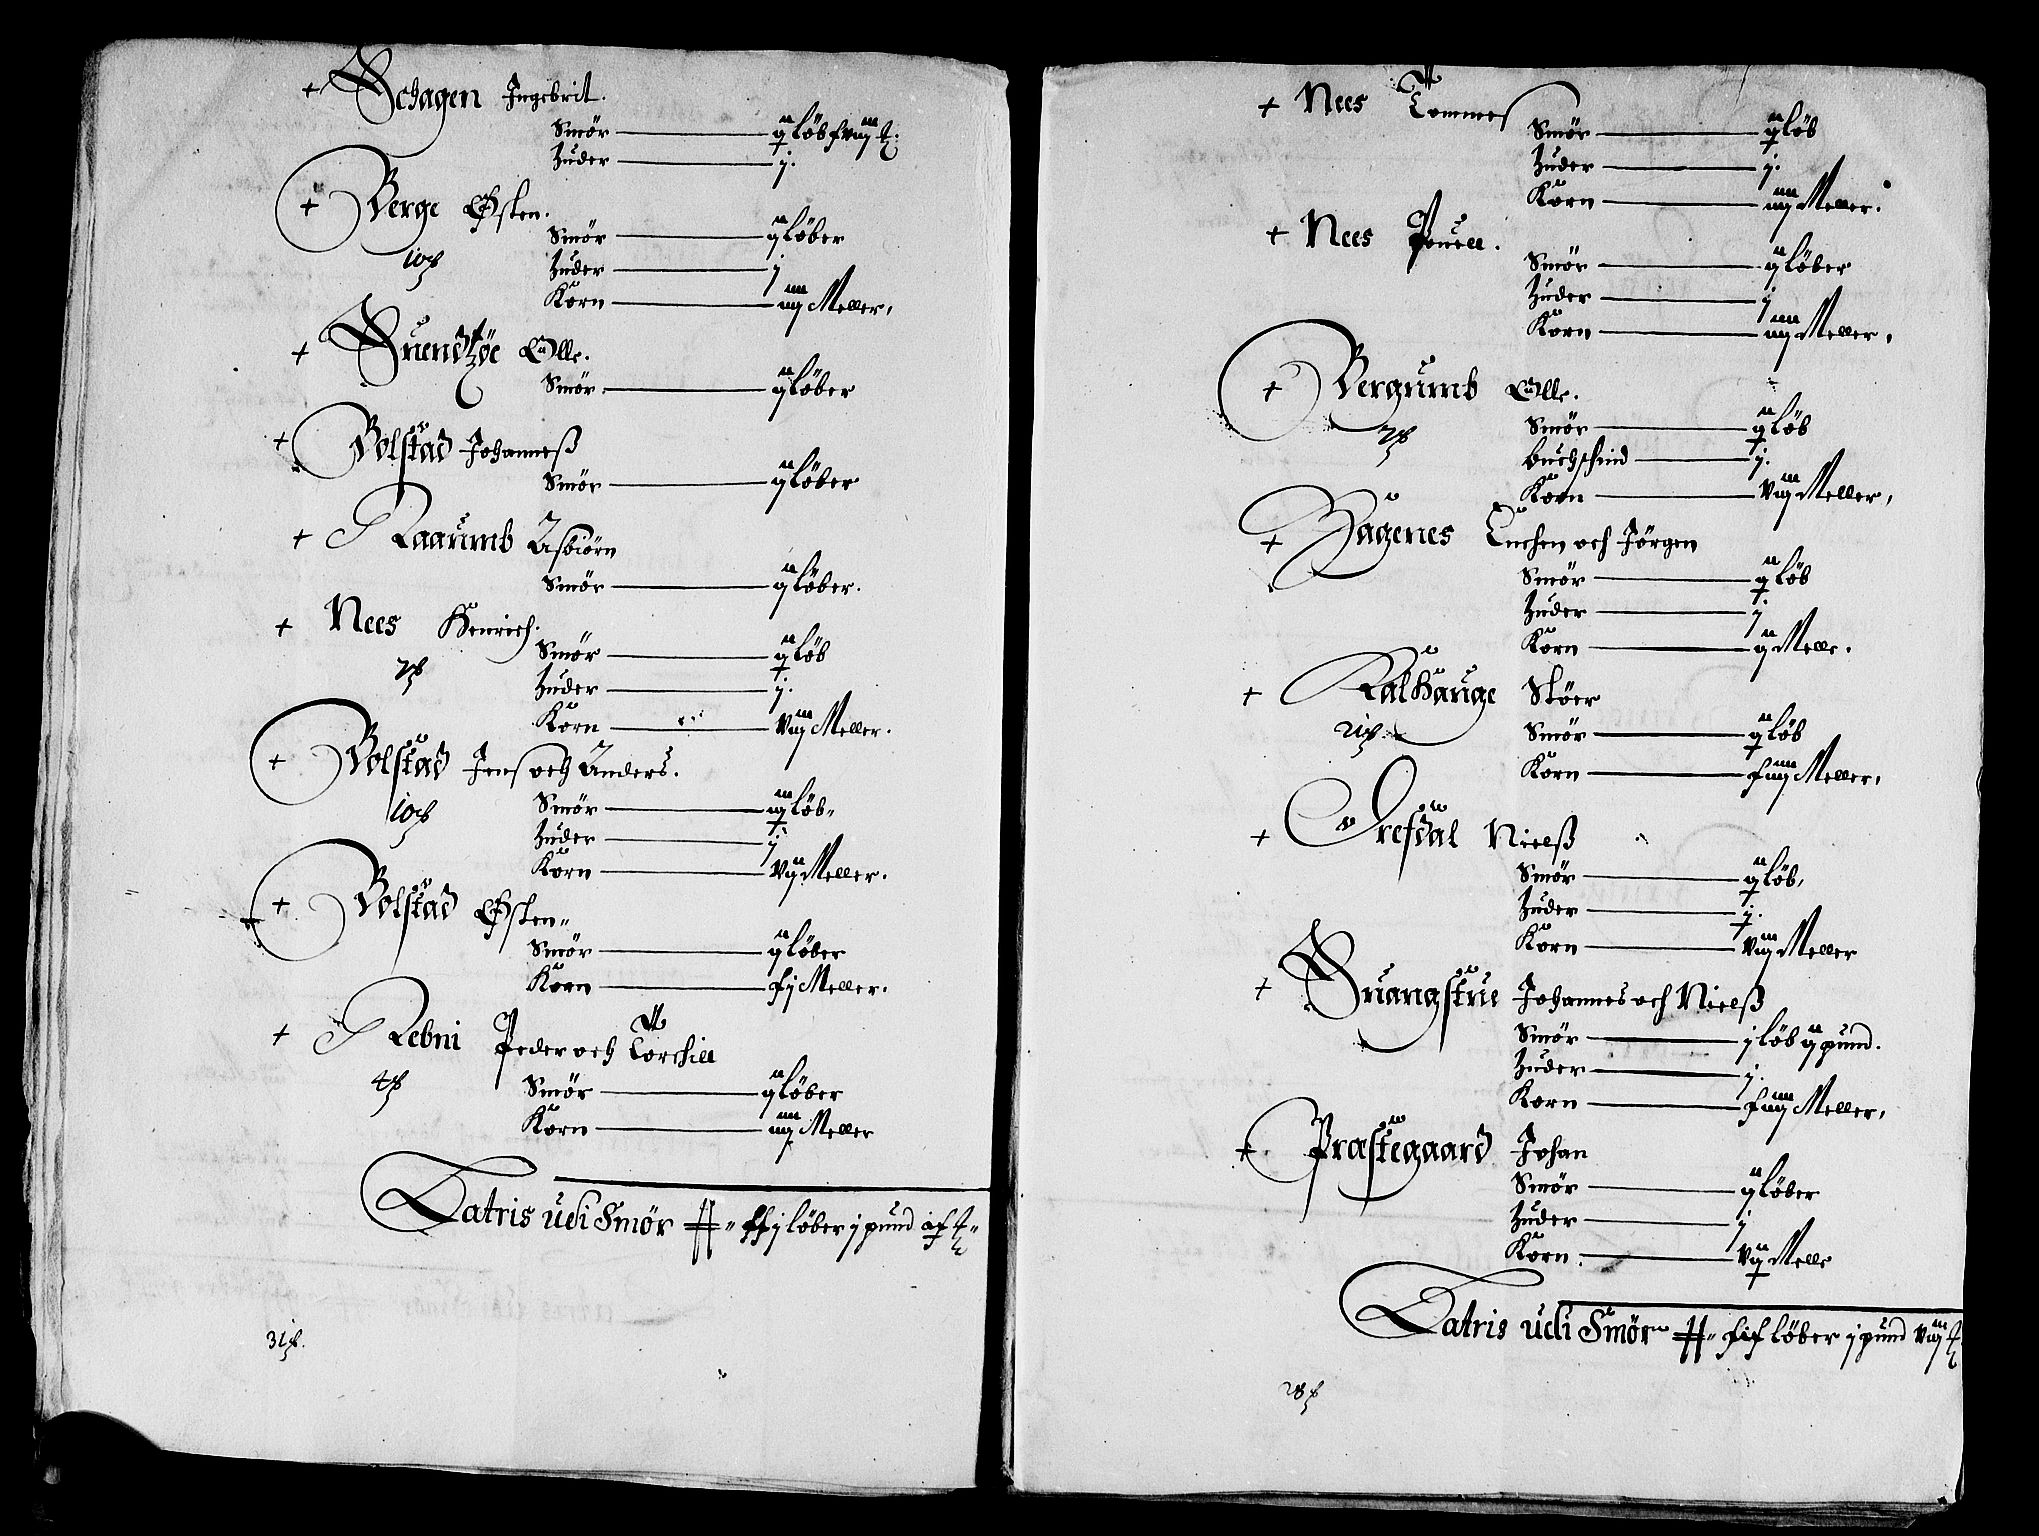 + Schagen Ingebrit.
Smör ij Löb
Huder j.
+ Berge Østen.
Smör ij Löber
Huder j
Korn iiij Meller,
+ Suendtzøe Olle.
Smör ij Löber
+ Bolstad Johanneß
Smör ij Löber
+ Raaumb Asbiörn
Smör ij Löber.
+ Nees Henrich.
Smör ij Löb
Huder j.
Korn viij Meller.
+ Bolstad Jens och Anders.
Smör iij Löb
Huder j
Korn vij Meller.
+ Bolstad Østen
Smör ij Löber
Korn xj Meller.
+ Rebni Peder och Torchill
Smör ij Löber
Korn iiij Meller
Latris udi Smör löber j pund
+ Nees Tommes
Smör ij Löb
Huder j.
Korn iiij Meller.
+ Nees Pouell.
Smör ij Löber
Huder j
Korn iiij Meller.
+ Bergumb Olle.
Smör ij Löb
buchschind j.
Korn viij Meller,
+ Hagenes och Jörgen
Smör ij Löb
Huder j
Korn ij Melle.
+ Kalhauge Stöer
Smör ij Löb
Korn xiiij Meller,
+ Orefdal Nielß
Smör ij Löb,
Huder j.
Korn viij Meller
+ Suangstue Johannes och Nielß
Smör j löb ij pund.
Huder j.
Korn xiiij Meller,
+ Præstegaard Johan
Smör ij Löber
Huder j
Korn. vij Melle
Latris udi Smör xix löber j pund viij